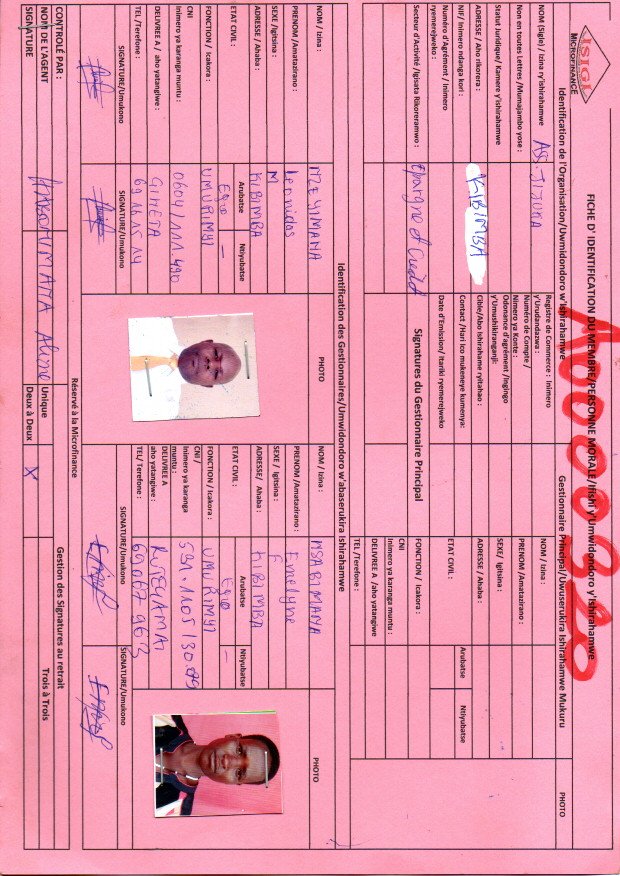 ISIGI
MICROFINANCE
FICHE D' IDENTIFICATION DU MEMBRE/PERSONNE MORALE/Ifishi y'Umwidondoro y'Ishirahamwe
Identification de l'Organisation/Uwmidondoro w'Ishirahamwe
Gestionnaire Principal/Uwuserukira Ishirahamwe Mukuru
PHOTO
NOM (Sigle) / Izina ry'ishirahamwe
Ass. JIJUKA
Non en toutes Lettres /Mumajambo yose :
Statut Juridique/ Kamere y'ishirahamwe
ADRESSE / Aho rikorera :
KIBIMBA
NIF/ Inimero ndanga kori :
Numéro d'Agrément / Inimero ryemerejweko :
Secteur d'Activité /Igisata Rikoreramwo :
Epargne et Crédit
Registre de Commerce : Inimero y'Urudandazwa :
Numéro de Compte / Nimero ya Konte :
Odonance d'agrément /Ingingo y'Umushikiranganji:
Cible/Abo Ishirahame ryitahao :
Contact /Hari ico mukeneye kumenya:
Date d'Emission/ Itariki ryemerejweko
Signatures du Gestionnaire Principal
NOM / Izina :
PRENOM /Amatazirano :
SEXE/ Igitsina :
ADRESSE / Ahaba :
ETAT CIVIL :
Arubatse
Ntiyubatse
FONCTION / Icakora :
CNI
Inimero ya karanga muntu :
DELIVREE A /aho yatangiwe
TEL /Terefone :
Identification des Gestionnaires/Umwidondoro w'abaserukira Ishirahamwe
NOM / Izina :
PHOTO
PRENOM /Amatazirano :
Leonidas
SEXE /Igitsina :
M
ADRESSE / Ahaba :
KIBIMBA
ETAT CIVIL :
Arubatse
Ntiyubatse
Ego
–
FONCTION / Icakora :
UMURIMYI
CNI
Inimero ya karanga muntu :
DELIVREE A / aho yatangiwe :
GIHETA
TEL /Terefone :
SIGNATURE/Umukono
SIGNATURE/Umukono
NOM / Izina :
NSABIMANA
PHOTO
PRENOM /Amatazirano :
Emelyne
SEXE / Igitsina :
F
ADRESSE/ Ahaba :
KIBIMBA
ETAT CIVIL :
Arubatse
Ntiyubatse
Ego
–
FONCTION / Icakora :
UMURIMYI
CNI /
Inimero ya karanga muntu :
DELIVREE A
aho yatangiwe :
TEL/ Terefone :
SIGNATURE/Umukono
SIGNATURE/Umukono
Réservé à la Microfinance
CONTROLÉ PAR :
Gestion des Signatures au retrait
NOM DE L'AGENT
HABONIMANA Aline
Unique
Trois à Trois
SIGNATURE
Deux à Deux
X